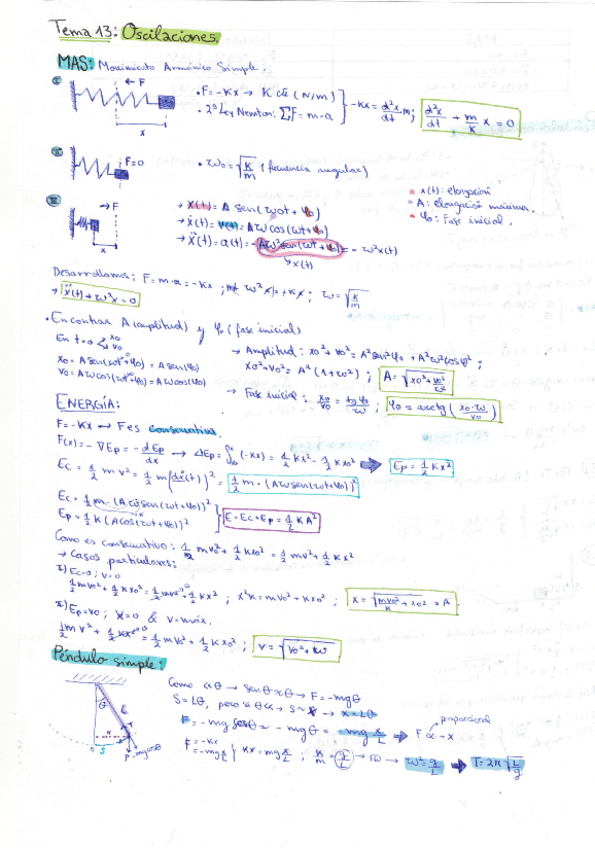 Tema 13: Oscilaciones.
MAS: Movimiento Armónico Simple.
I
← F
x
• F = -Kx → K cte (N/m)
• 2ª Ley Newton: ΣF = m·a
-Kx = d²x/dt m;
d²x/dt + m/K x = 0
II
F=0
• ω₀ = √(K/m) (frecuencia angular)
III
→ F
x
→ x(t) = A sen(ω₀t + φ₀)
→ ẋ(t) = v(t) = Aω cos(ωt + φ₀)
→ ẍ(t) = a(t) = -Aω² sen(ωt + φ₀) = -ω²x(t)
x(t)
• x(t): elongación
• A: elongación máxima.
• φ₀: Fase inicial.
Desarrollamos: F = m·a = -Kx ; m ω² x = +Kx ; ω = √(K/m)
→ ẍ(t) + ω²x = 0
• Encontrar A (amplitud) y φ₀ (fase inicial)
En t=0 x₀ v₀
x₀ = A sen(ω0t + φ₀) = A sen(φ₀)
v₀ = Aω cos(ωt + φ₀) = Aω cos(φ₀)
→ Amplitud: x₀² + v₀² = A² sen²φ₀ + A²ω² cos φ² ;
x₀² + v₀² = A² (1+ω²) ; A = √(x₀² + v₀²/ω²)
→ Fase inicial: x₀/v₀ = tg φ₀/ω ; φ₀ = arctg (x₀·ω/v₀)
ENERGÍA:
F = -Kx → F es conservativa.
F(x) = -∇Ep = -dEp/dx → ΔEp = ∫ (-Kx) = 1/2 Kx² - 1/2 Kx₀² ⇒ Ep = 1/2 Kx²
Ec = 1/2 m v² = 1/2 m (dx(t))² = 1/2 m · (Aω sen(ωt+φ₀))²
Ec = 1/2 m · (Aω sen(ωt+φ₀))²
Ep = 1/2 K (A cos(ωt+φ₀))²
E = Ec + Ep = 1/2 K A²
Como es conservativo: 1/2 mv₀² + 1/2 Kx₀² = 1/2 mv² + 1/2 Kx²
→ Casos particulares:
I) Ec=0 ; v=0
1/2 mv₀² + 1/2 Kx₀² = 1/2 mv² + 1/2 Kx² ; x²K = mv₀² + Kx₀² ; x = √(mv₀²/K + x₀²) = A
II) Ep=0 ; x=0 & v=máx.
1/2 mv² + 1/2 Kx² = 1/2 mv₀² + 1/2 Kx₀² ; v = √(v₀² + ω)
Péndulo simple:
θ
L
x
S
P - mg cosθ
Como θ → sen θ ≈ θ → F = -mgθ
S = Lθ, pero → S ≈ x → x = Lθ
F = -mg senθ ≈ -mgθ = -mg x/L ⇒ F ∝ -x
proporcional
F = -Kx
= -mg x/L
Kx = mg x/L ; K/m = g/L → → ω² = g/L ⇒ T = 2π √(L/g)